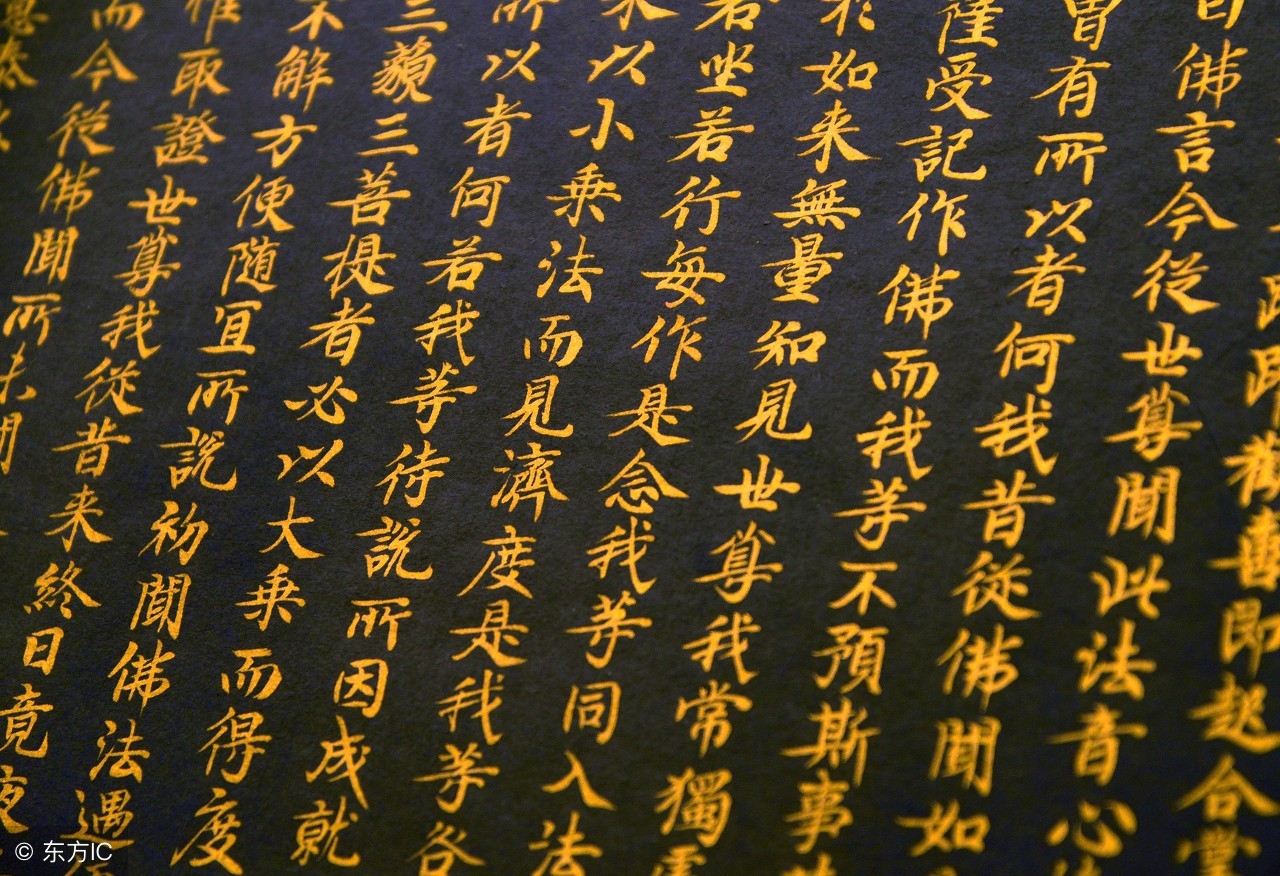 踊躍歡喜即起合掌
白佛言今從世尊聞此法音心
曾有所以者何我昔從佛聞如
薩受記作佛而我等不預斯事
於如来無量知見世尊我常獨
若坐若行每作是念我等同入法
来以小乗法而見濟度是我等咎
所以者何若我等待說所因成就
三藐三菩提者必以大乗而得度
不解方便随宜所說初聞佛法遇
取證世尊我從昔来終日竟夜
而今從佛聞所未聞
© 东方IC